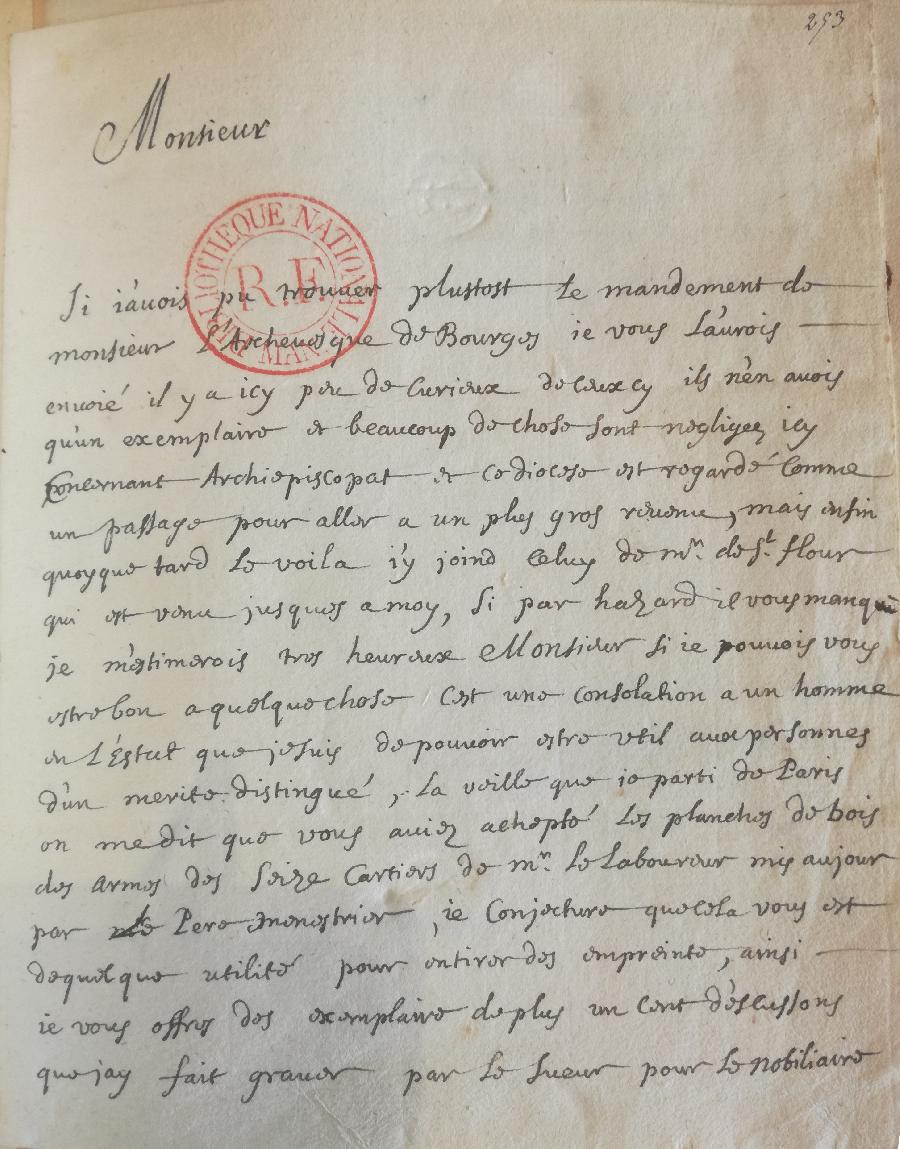 253
Monsieur
BIBLIOTHEQUE NATIONALE MAN
R.F.
Si i'auois pu trouuer plustost le mandement de
monsieur l'Archeuesque de Bourges ie vous l'aurois
enuoié il y a icy peu de Curieux de ceux cy ils n'en auois
qu'un exemplaire et beaucoup de chose sont negligez icy
Concernant Archiepiscopat et ce diocese est regardé Comme
un passage pour aller a un plus gros reuenu, mais enfin
quoyque tard le voila i'y joind Celuy de mr. de st. flour
qui est venu jusques a moy, Si par hazard il vous manqu
je m'estimerois tres heureux Monsieur si ie pouuois vous
estre bon a quelque chose C'est une Consolation a un homme
en l'Estat que je suis de pouuoir estre vtil aux personnes
d'un merite distingué, La veille que ie parti de Paris
on me dit que vous auiez achepté les planches de bois
des armes des Seize Cartiers de mr. le Laboureur mis au jour
par le Pere menestrier, ie Conjecture que cela vous est
de quelque utilité pour en tirer des empreinte, ainsi
ie vous offres des exemplaire de plus un Cent d'escussons
que jay fait grauer par le Sueur pour le nobiliaire